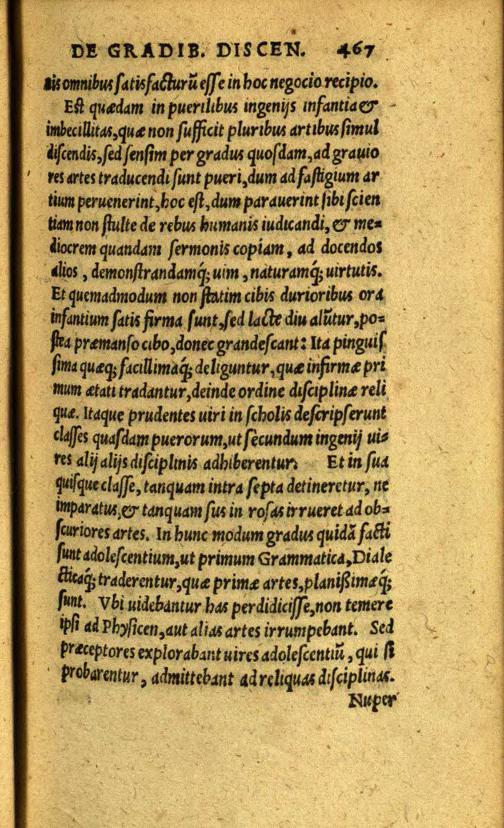 DE GRADIB. DISCEN. 467
nis omnibus satisfacturū esse in hoc negocio recipio.
Est quædam in puerilibus ingenijs infantia &
imbecillitas, quæ non sufficit pluribus artibus simul
discendis, sed sensim per gradus quosdam, ad grauio
res artes traducendi sunt pueri, dum ad fastigium ar
tium peruenerint, hoc est, dum parauerint sibi scien
tiam non stulte de rebus humanis iudicandi, & me=
diocrem quandam sermonis copiam, ad docendos
alios, demonstrandamq; uim, naturamq; uirtutis.
Et quemadmodum non statim cibis durioribus ora
infantium satis firma sunt, sed lacte diu alūtur, po=
stea præmanso cibo, donec grandescant: Ita pinguis
sima quæq; facillimaq; deliguntur, quæ infirmæ pri
mum ætati tradantur, deinde ordine disciplinæ reli
quæ. Itaque prudentes uiri in scholis descripserunt
classes quasdam puerorum, ut secundum ingenij ui=
res alij alijs disciplinis adhiberentur. Et in sua
quisque classe, tanquam intra septa detineretur, ne
imparatus, & tanquam sus in rosas irrueret ad ob=
scuriores artes. In hunc modum gradus quidā facti
sunt adolescentium, ut primum Grammatica, Diale
cticaq; traderentur, quæ primæ artes, planißimæq;
sunt. Vbi uidebantur has perdidicisse, non temere
ipsi ad Physicen, aut alias artes irrumpebant. Sed
præceptores explorabant uires adolescentiū, qui si
probarentur, admittebant ad reliquas disciplinas.
Nuper